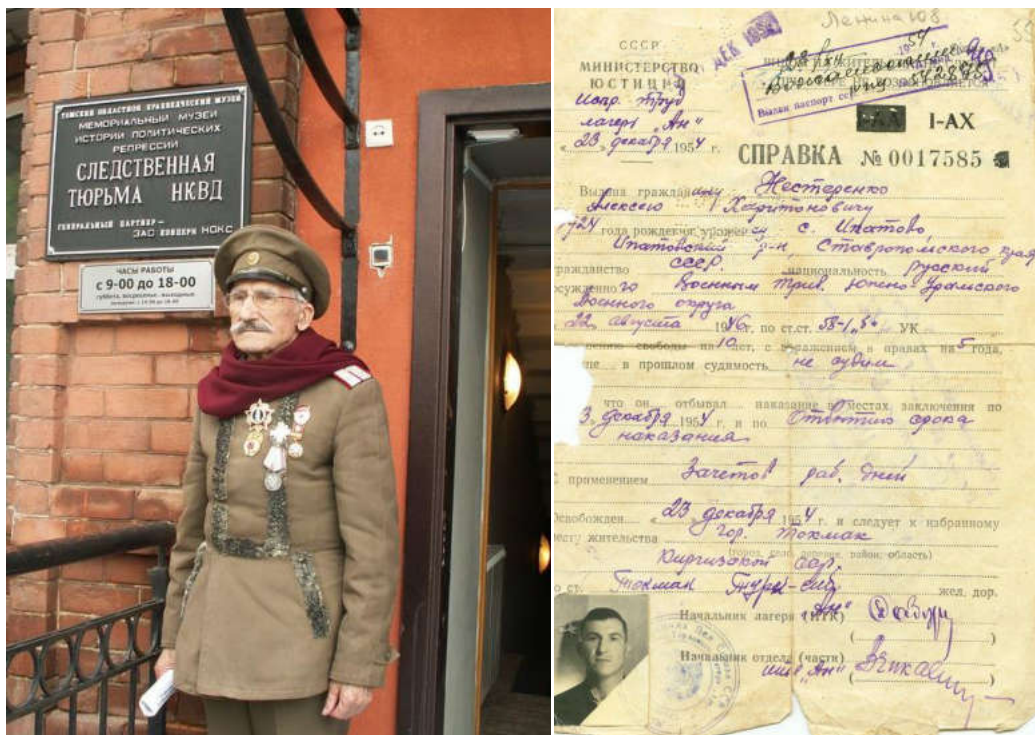 ТОМСКИЙ ОБЛАСТНОЙ КРАЕВЕДЧЕСКИЙ МУЗЕЙ
МЕМОРИАЛЬНЫЙ МУЗЕЙ
ИСТОРИИ ПОЛИТИЧЕСКИХ
РЕПРЕССИИ
СЛЕДСТВЕННАЯ
ТЮРЬМА НКВД
ГЕНЕРАЛЬНЫЙ ПАРТНЕР —
ЗАО КОНЦЕРН НОКС
ЧАСЫ РАБОТЫ
с 9-00 до 18-00
суббота, воскресенье - выходные
Ленина 108
СССР
МИНИСТЕРСТВО
ЮСТИЦИИ
Испр. Труд
лагерь „Ан"
23 декабря 1954 г.
ДЕК 195
Выдан паспорт
I-АХ
СПРАВКА № 0017585
Выдана гражданину Нестеренко
Алексею Харитоновичу
года рождения, урожен с. Ипатово,
Ипатовский р-н, Ставропольского края
гражданство СССР. национальность русский
осужденного Военным Триб. Южно-Уральского
Военного округа
22 августа 1946 г. по ст.ст. 58-1 УК
свободы на 10 лет, с поражением в правах на 5 года,
в прошлом судимость не судим
что он отбывал наказание в местах заключения по
3 декабря 1954 г. и по отбытию срока
наказания
с применением Зачетов раб. дней
Освобожден „ 23 декабря 1954 г. и следует к избранному
месту жительства гор. Токмак
(город, село, деревня, район, область)
Киргизской ССР.
ст. Токмак Турк-Сиб жел. дор.
Начальник лагеря (ИТК) „Ан"
Начальник отдела (части)
„Ан"